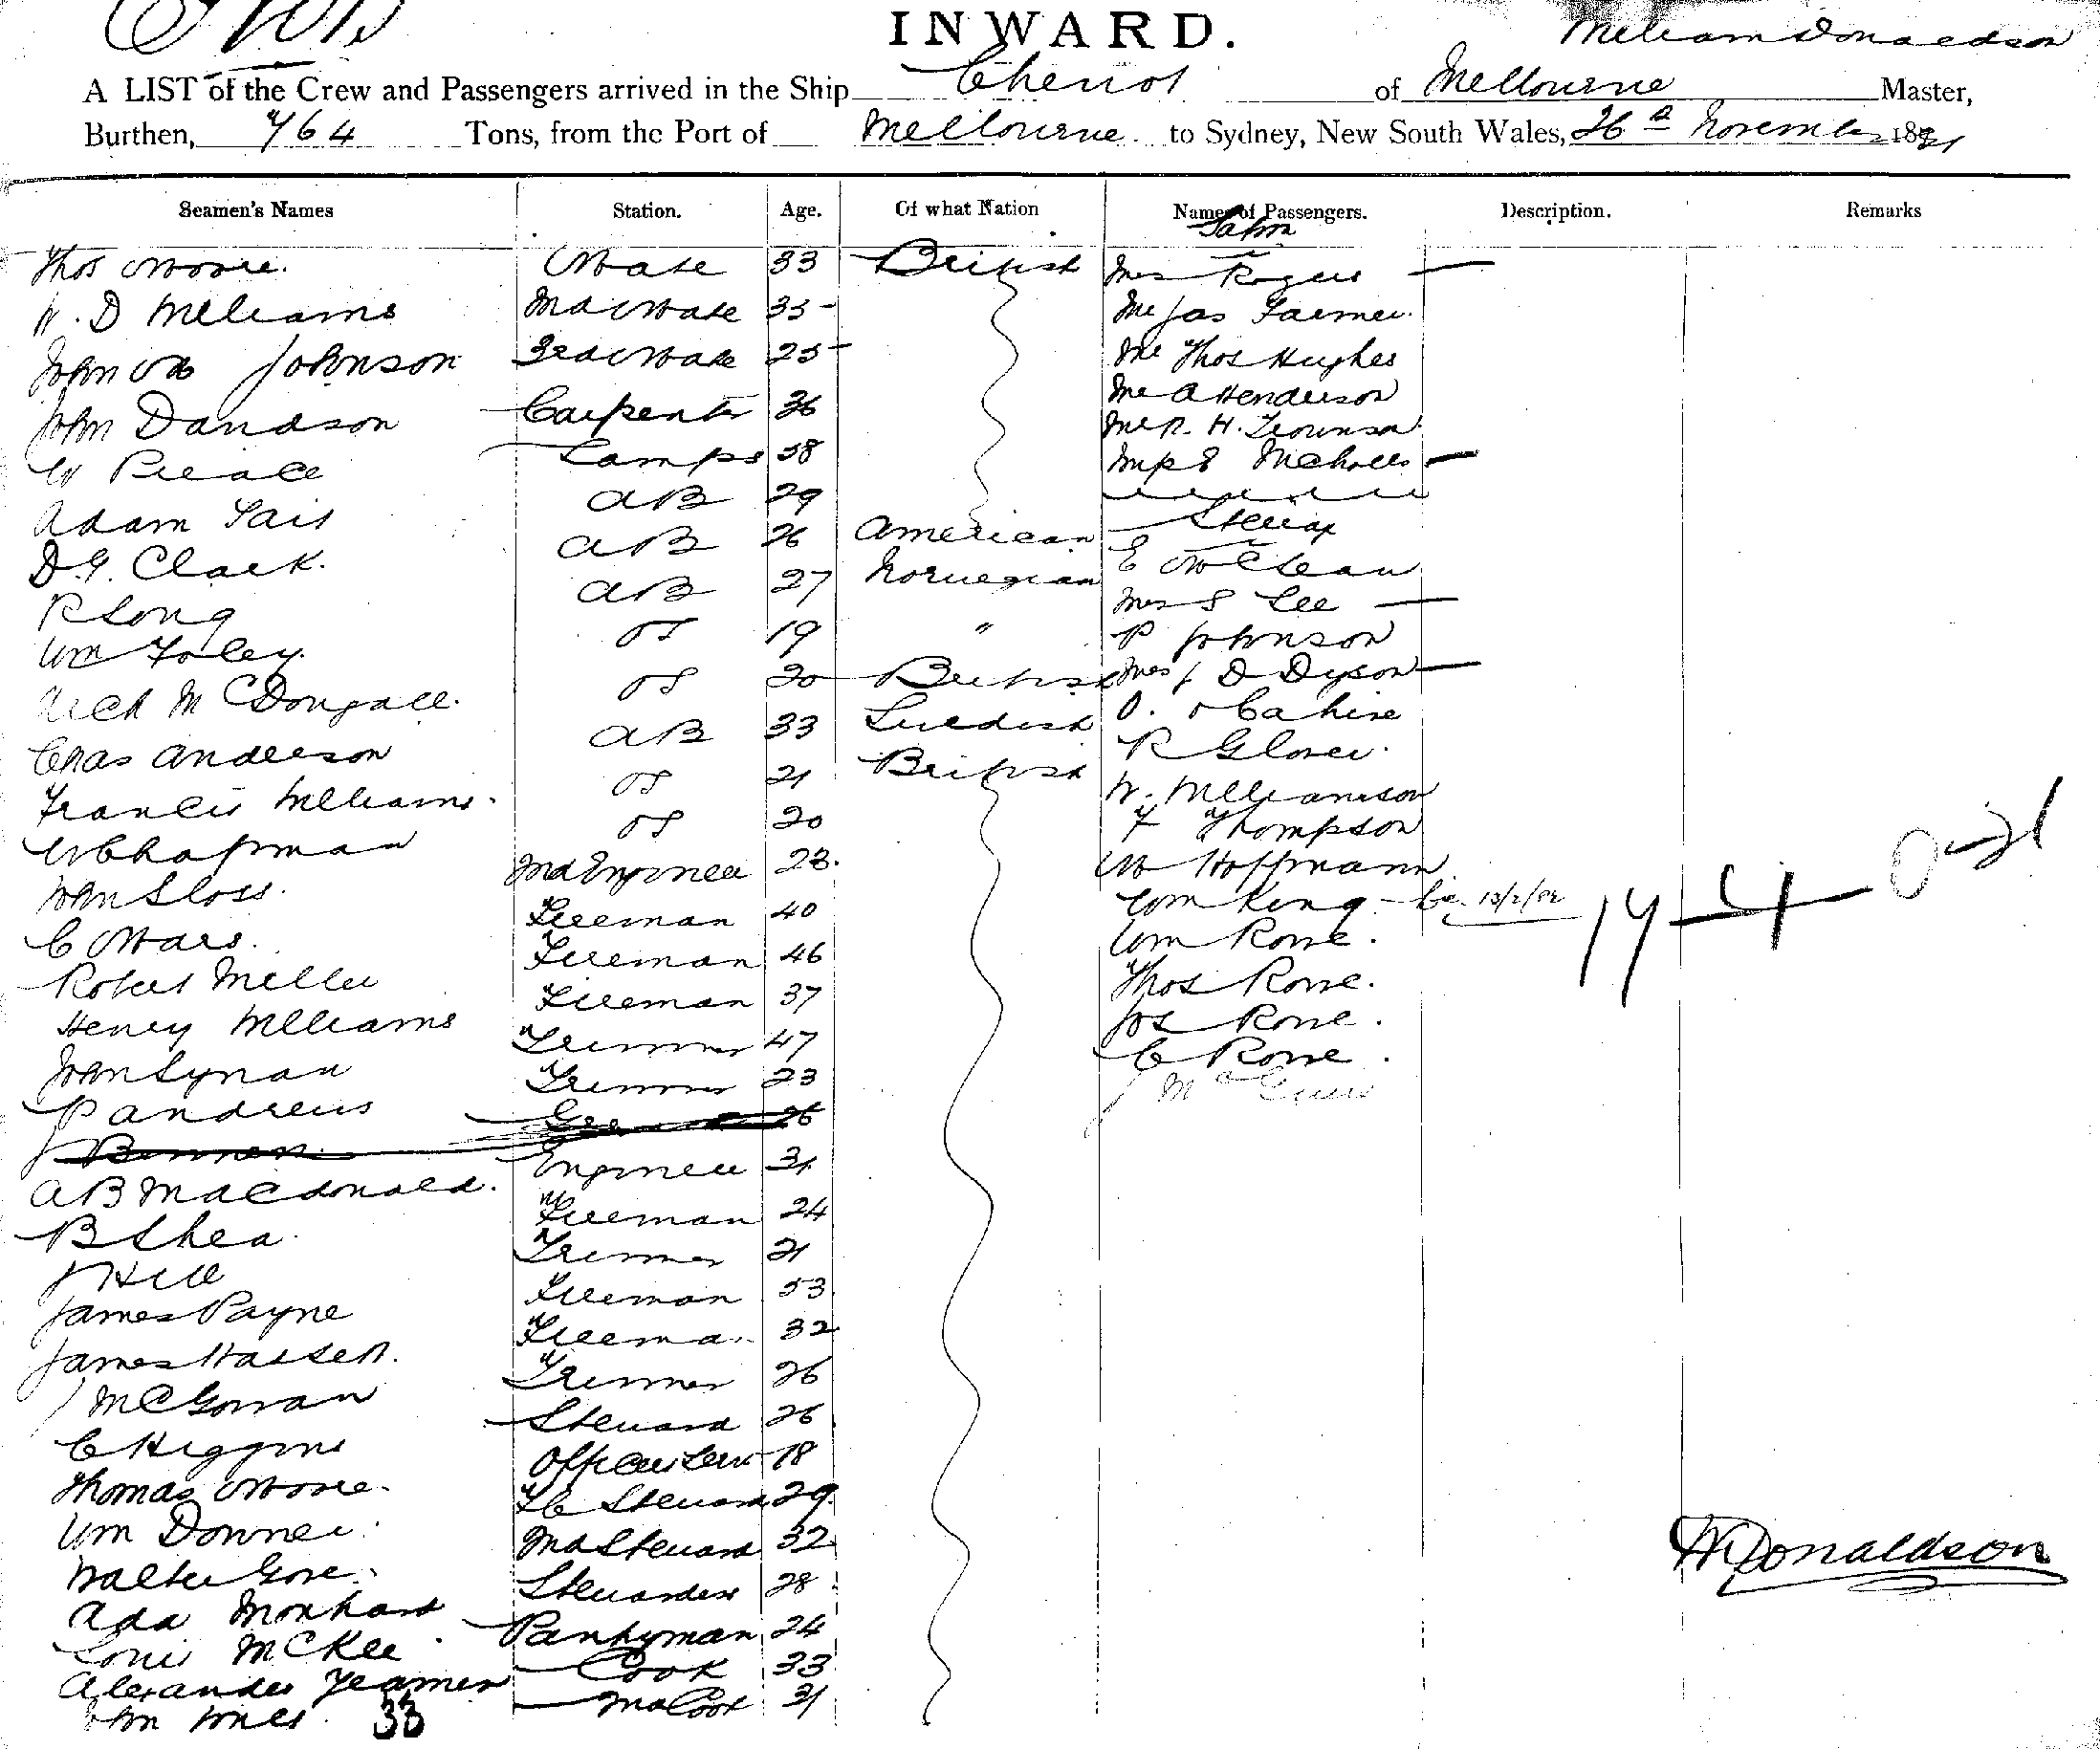 INWARD.
William Donaldson
A LIST of the Crew and Passengers arrived in the Ship Cheviot of Melbourne Master,
Burthen, 764 Tons, from the Port of Melbourne to Sydney, New South Wales, 26th November 1891
Seamen's Names Station. Age. Of what Nation Names of Passengers. Description. Remarks
Saloon
Thos Moore. Mate 33 British Mrs Rogers
W. D Williams 2nd Mate 35 Mr Jas Farmer.
John M Johnson 3rd Mate 25 Mr Thos Hughes
John Davidson Carpenter 36 Mr A Henderson
W Pearce Lamps 58 Mr R. H.
Adam Tait AB 29 Nicholls
D.G. Clark. AB 26 American Steerage
R Long AB 27 Norwegian E McClean
Wm Foley. OS 19 " Mrs S Lee
Arch McDougall. OS 20 British P Johnson
Chas Anderson AB 33 Swedish Mrs J D Dyson
Francis Williams. OS 21 British O. Cahire
W Chapman OS 20 R Glover.
John Sloss. 2nd Engineer 23. W. Williamson
C Mars. Fireman 40 F Thompson
Robert Miller Fireman 46 M Hoffmann
Henry Williams Fireman 37 Wm King - 13/2/92
John Lynan Trimmer 47 Wm Rowe.
P Andrews Trimmer 23 Thos Rowe.
J 26 Jos Rowe.
A B Macdonald. Engineer 31 C Rowe.
B Shea. Fireman 24 J
J Hill Trimmer 21
James Payne Fireman 53
James Fireman 32
J McGowan Trimmer 26
C Higgins Steward 26
Thomas Moore. Officers Serv 18
Wm Downer. F C Steward 29
Walter Gore. 2nd Steward 32
Ada Stewardess 28
Louis McKee Pantryman 24
Alexander Cook 33
John Jones. 2nd Cook 31
33
17 4
W Donaldson